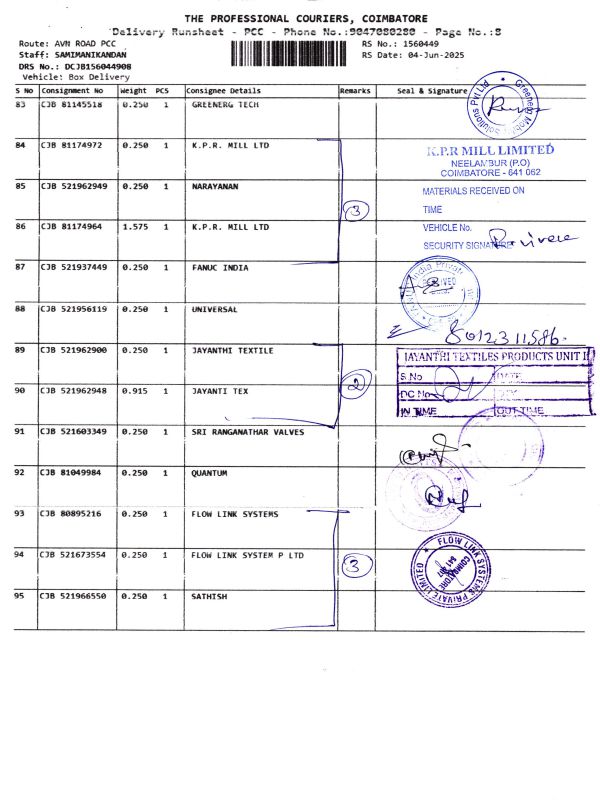 THE PROFESSIONAL COURIERS, COIMBATORE
Delivery Runsheet - PCC - Phone No.:9047080280 - Page No.:8
Route: AVN ROAD PCC
RS No.: 1560449
Staff: SAMIMANIKANDAN
RS Date: 04-Jun-2025
DRS No.: DCJB156044908
Vehicle: Box Delivery
S No Consignment No Weight PCS Consignee Details Remarks Seal & Signature
83 CJB 81145518 0.250 1 GREENERG TECH
84 CJB 81174972 0.250 1 K.P.R. MILL LTD
K.P.R MILL LIMITED
NEELAMBUR (P.O)
COIMBATORE - 641 062
85 CJB 521962949 0.250 1 NARAYANAN
3
MATERIALS RECEIVED ON
TIME
86 CJB 81174964 1.575 1 K.P.R. MILL LTD
VEHICLE No.
SECURITY SIGNATURE
87 CJB 521937449 0.250 1 FANUC INDIA
88 CJB 521956119 0.250 1 UNIVERSAL
8012311586
89 CJB 521962900 0.250 1 JAYANTHI TEXTILE
JAYANTHI TEXTILES PRODUCTS UNIT II
S.No DATE
90 CJB 521962948 0.915 1 JAYANTI TEX
2
DC No
IN TIME OUT TIME
91 CJB 521603349 0.250 1 SRI RANGANATHAR VALVES
92 CJB 81049984 0.250 1 QUANTUM
93 CJB 80895216 0.250 1 FLOW LINK SYSTEMS
94 CJB 521673554 0.250 1 FLOW LINK SYSTEM P LTD
3
FLOW LINK SYSTEMS PRIVATE LIMITED
COIMBATORE
95 CJB 521966550 0.250 1 SATHISH